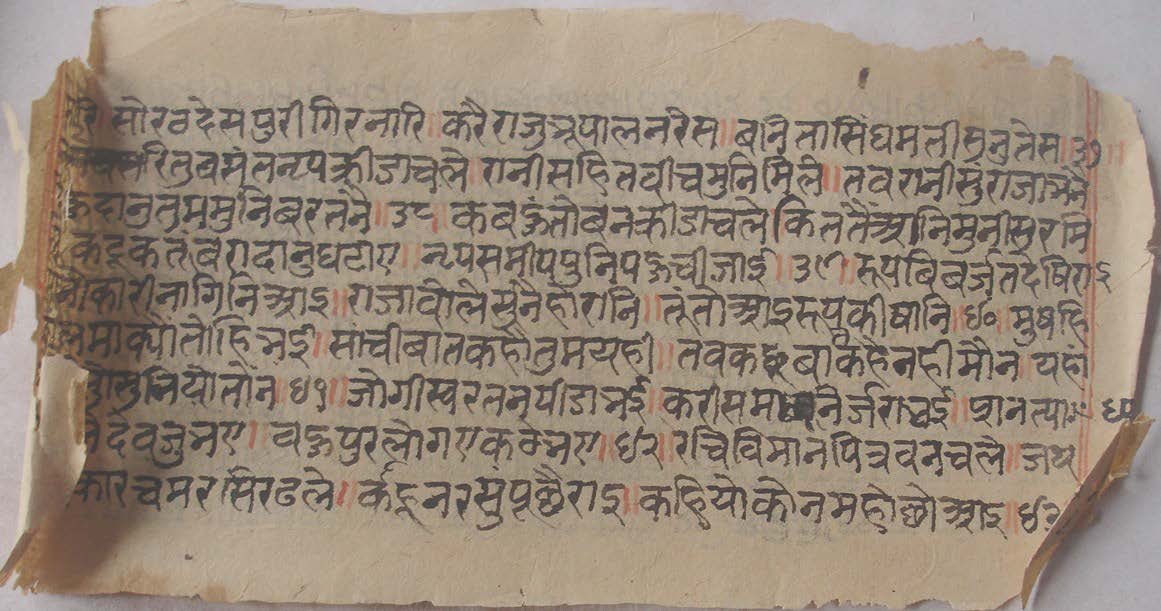 सोरठदेसपुरीगिरनारि ॥ करैराजुभूपालनरेस ॥ बानैतासिंघमतीसुनुतेस ॥ ३७ ॥
रितुबसंतनृपक्रीडाचले ॥ रानीसहितवीचमुनिमिले ॥ तवरानीसुराजाभनै
दानुतुममुनिबरतनै ॥ ३८ ॥ कबहुंतौबनक्रीडाचले किततैंआनिमुनीसुरमि
कटुकतंबरादानुघटाए ॥ नृपसमीपपुनिपहुचीजाई ॥ ३९ ॥ रूपबिबर्जतदेषिराइ
कारीनागिनिआइ ॥ राजाबोलेसुनैहोरानि ॥ तूंतौआइरूपकीषानि ॥ ४० ॥ मुषहि
माक्योतोहिभई ॥ सांचीबातकहौतुमयही ॥ तवकछुबाकहैनहीमौन यहां
मुनियौतौन ॥ ४१ ॥ जोगीस्वरतनपीडाभई ॥ करीसमा निर्जराठई ॥ प्रानत्या
देवजुभए ॥ बहुपुरलोगएकठेभए ॥ ४२ ॥ रचिविमानपित्रवनचले ॥ जय
कारचमरसिरढले ॥ कहूनरसुपूछैराइ ॥ कहियौकोनमहोछौआइ ॥ ४३